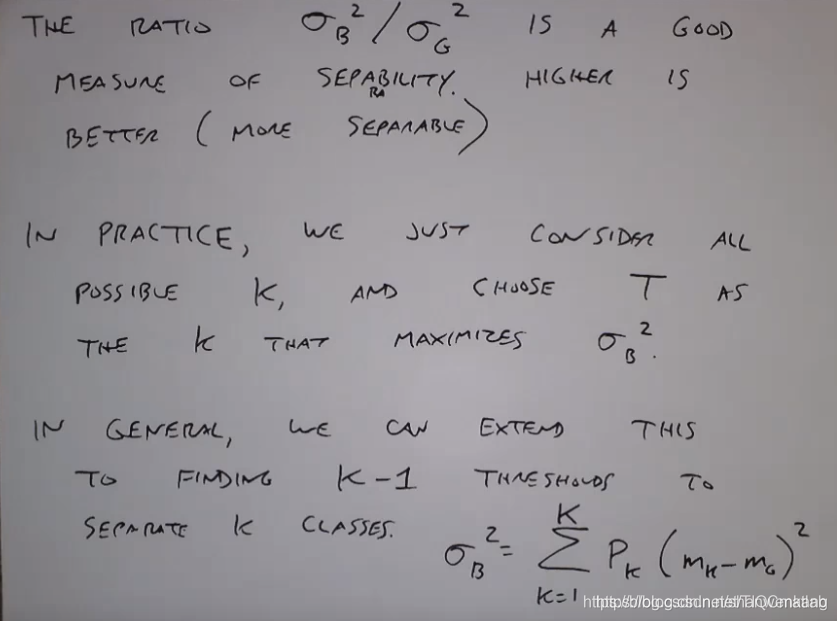 THE RATIO σ_B²/σ_G² IS A GOOD
MEASURE OF SEPABILITY. HIGHER IS
RA
BETTER (MORE SEPARABLE)
IN PRACTICE, WE JUST CONSIDER ALL
POSSIBLE K, AND CHOOSE T AS
THE K THAT MAXIMIZES σ_B².
IN GENERAL, WE CAN EXTEND THIS
TO FINDING K-1 THRESHOLDS TO
SEPARATE K CLASSES.
σ_B² = Σ_{K=1}^{K} P_K (m_K - m_G)²